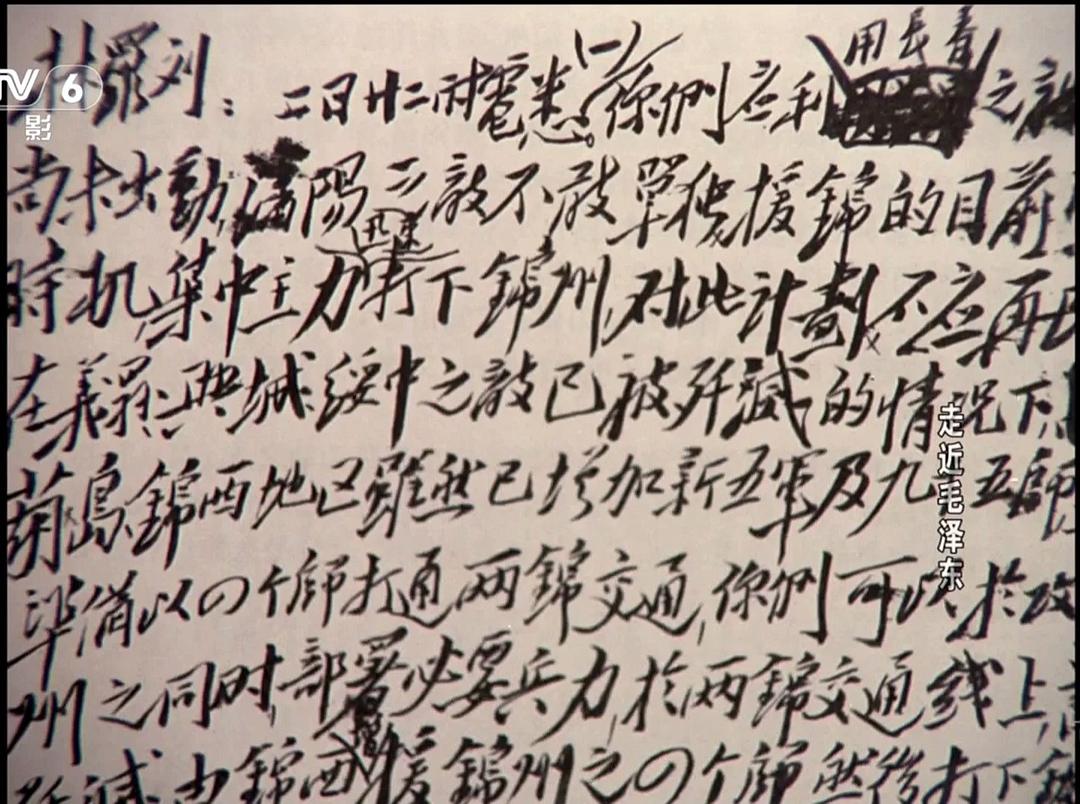 用長春
林羅刘：二日廿二时電悉。(一)你們应利 之敌
尚未出動，瀋陽之敌不敢單独援錦的目前
迅速
時机，集中主力打下錦州，对此計劃不应再
在義縣、兴城、綏中之敌已被歼滅的情况下，
葫島、錦西地区雖然已增加新五軍及九五師
準備以四个師打通两錦交通，你們可以於攻
州之同时，部署必要兵力於两錦交通线上，
增
歼滅由錦西援錦州之四个師然後打下錦
TV 6
影
走近毛泽东